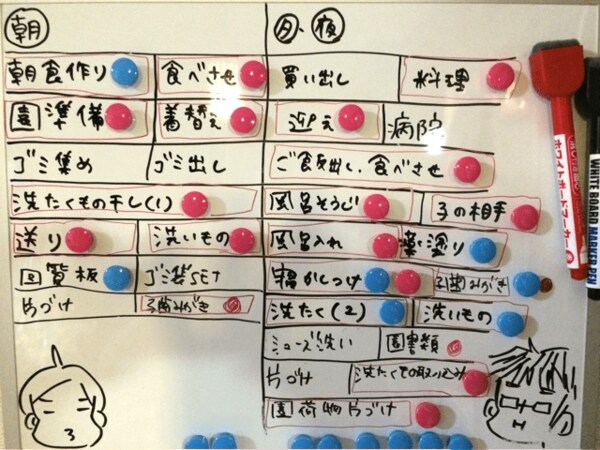 朝
朝食作り 食べさせ
園準備 着替え
ゴミ集め ゴミ出し
洗たくもの干し(1)
送り 洗いもの
回覧板 ゴミ袋SET
片づけ 子歯みがき
夕、夜
買い出し 料理
迎え 病院
ご飯出し、食べさせ
風呂そうじ 子の相手
風呂入れ 薬塗り
寝かしつけ 子歯みがき
洗たく(2) 洗いもの
シューズ洗い 園書類
片づけ 洗たくもの取り込み
園荷物片づけ
ホワイトボードマーカー
WHITE BOARD MARKER PEN